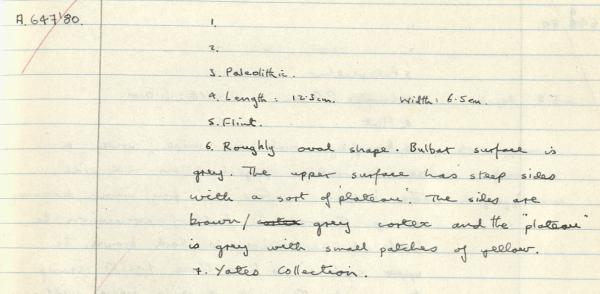 A.647'80.
1.
2.
3. Paleolithic.
4. Length: 12.3cm. Width: 6.5cm.
5. Flint.
6. Roughly oval shape. Bulbar surface is
grey. The upper surface has steep sides
with a sort of "plateau". The sides are
brown/ cortex grey cortex and the "plateau"
is grey with small patches of yellow.
7. Yates Collection.